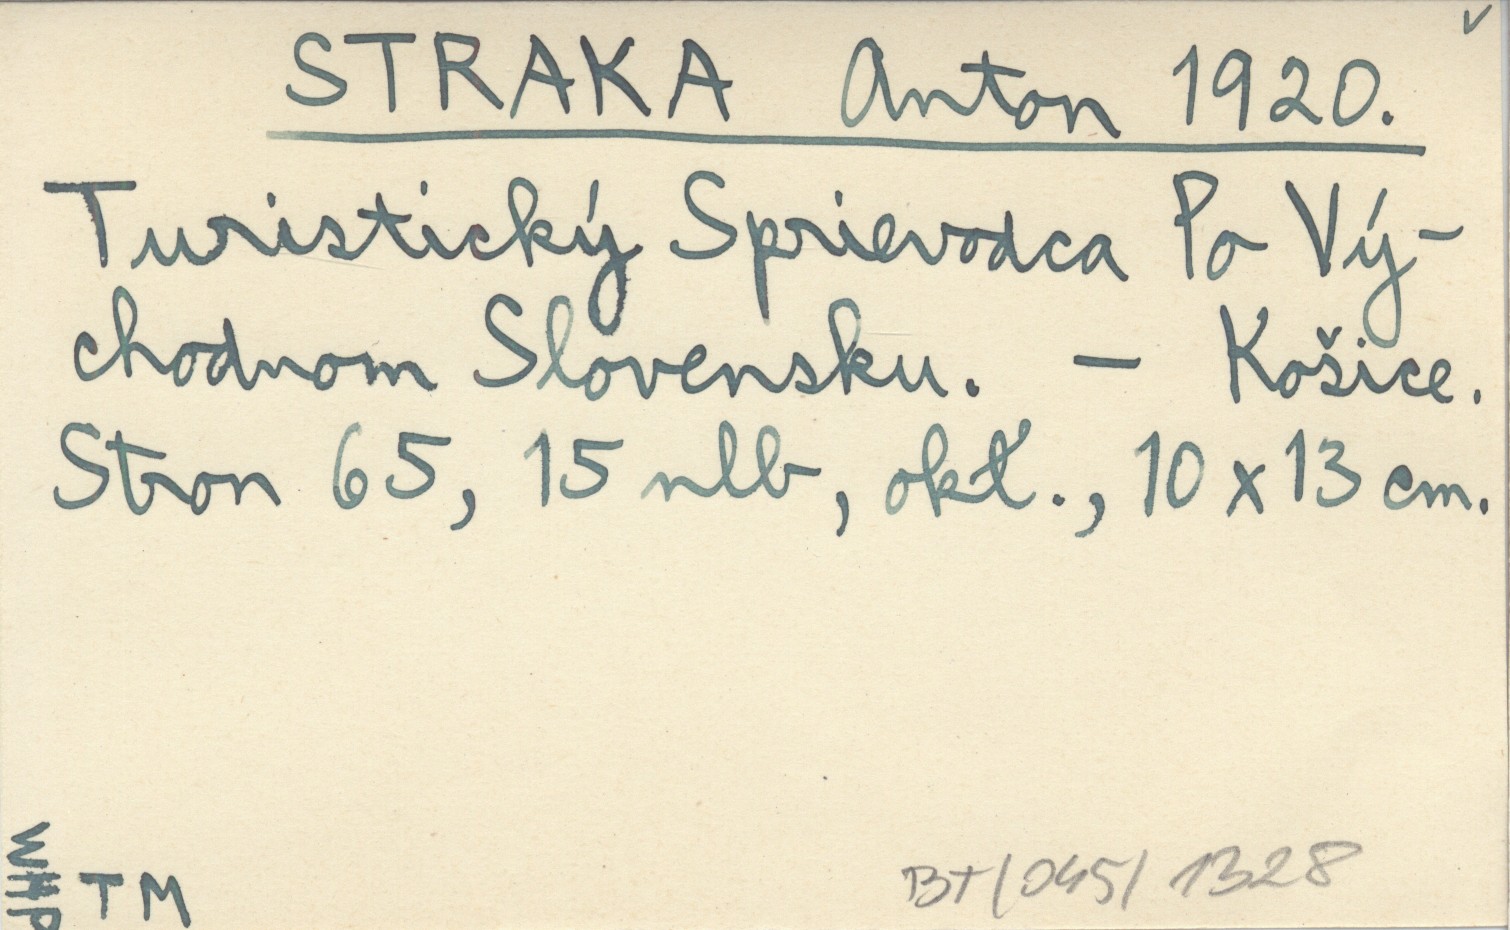 STRAKA Anton 1920.
Turistický Sprievodca Po Vý-
chodnom Slovensku. — Košice.
Stron 65, 15 nlb, okł., 10 x 13 cm.
WHP
TM
BT/045/ 1328